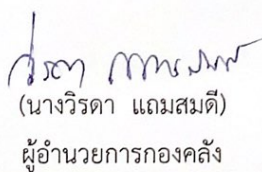 (นางวิรดา แถมสมดี)
ผู้อำนวยการกองคลัง